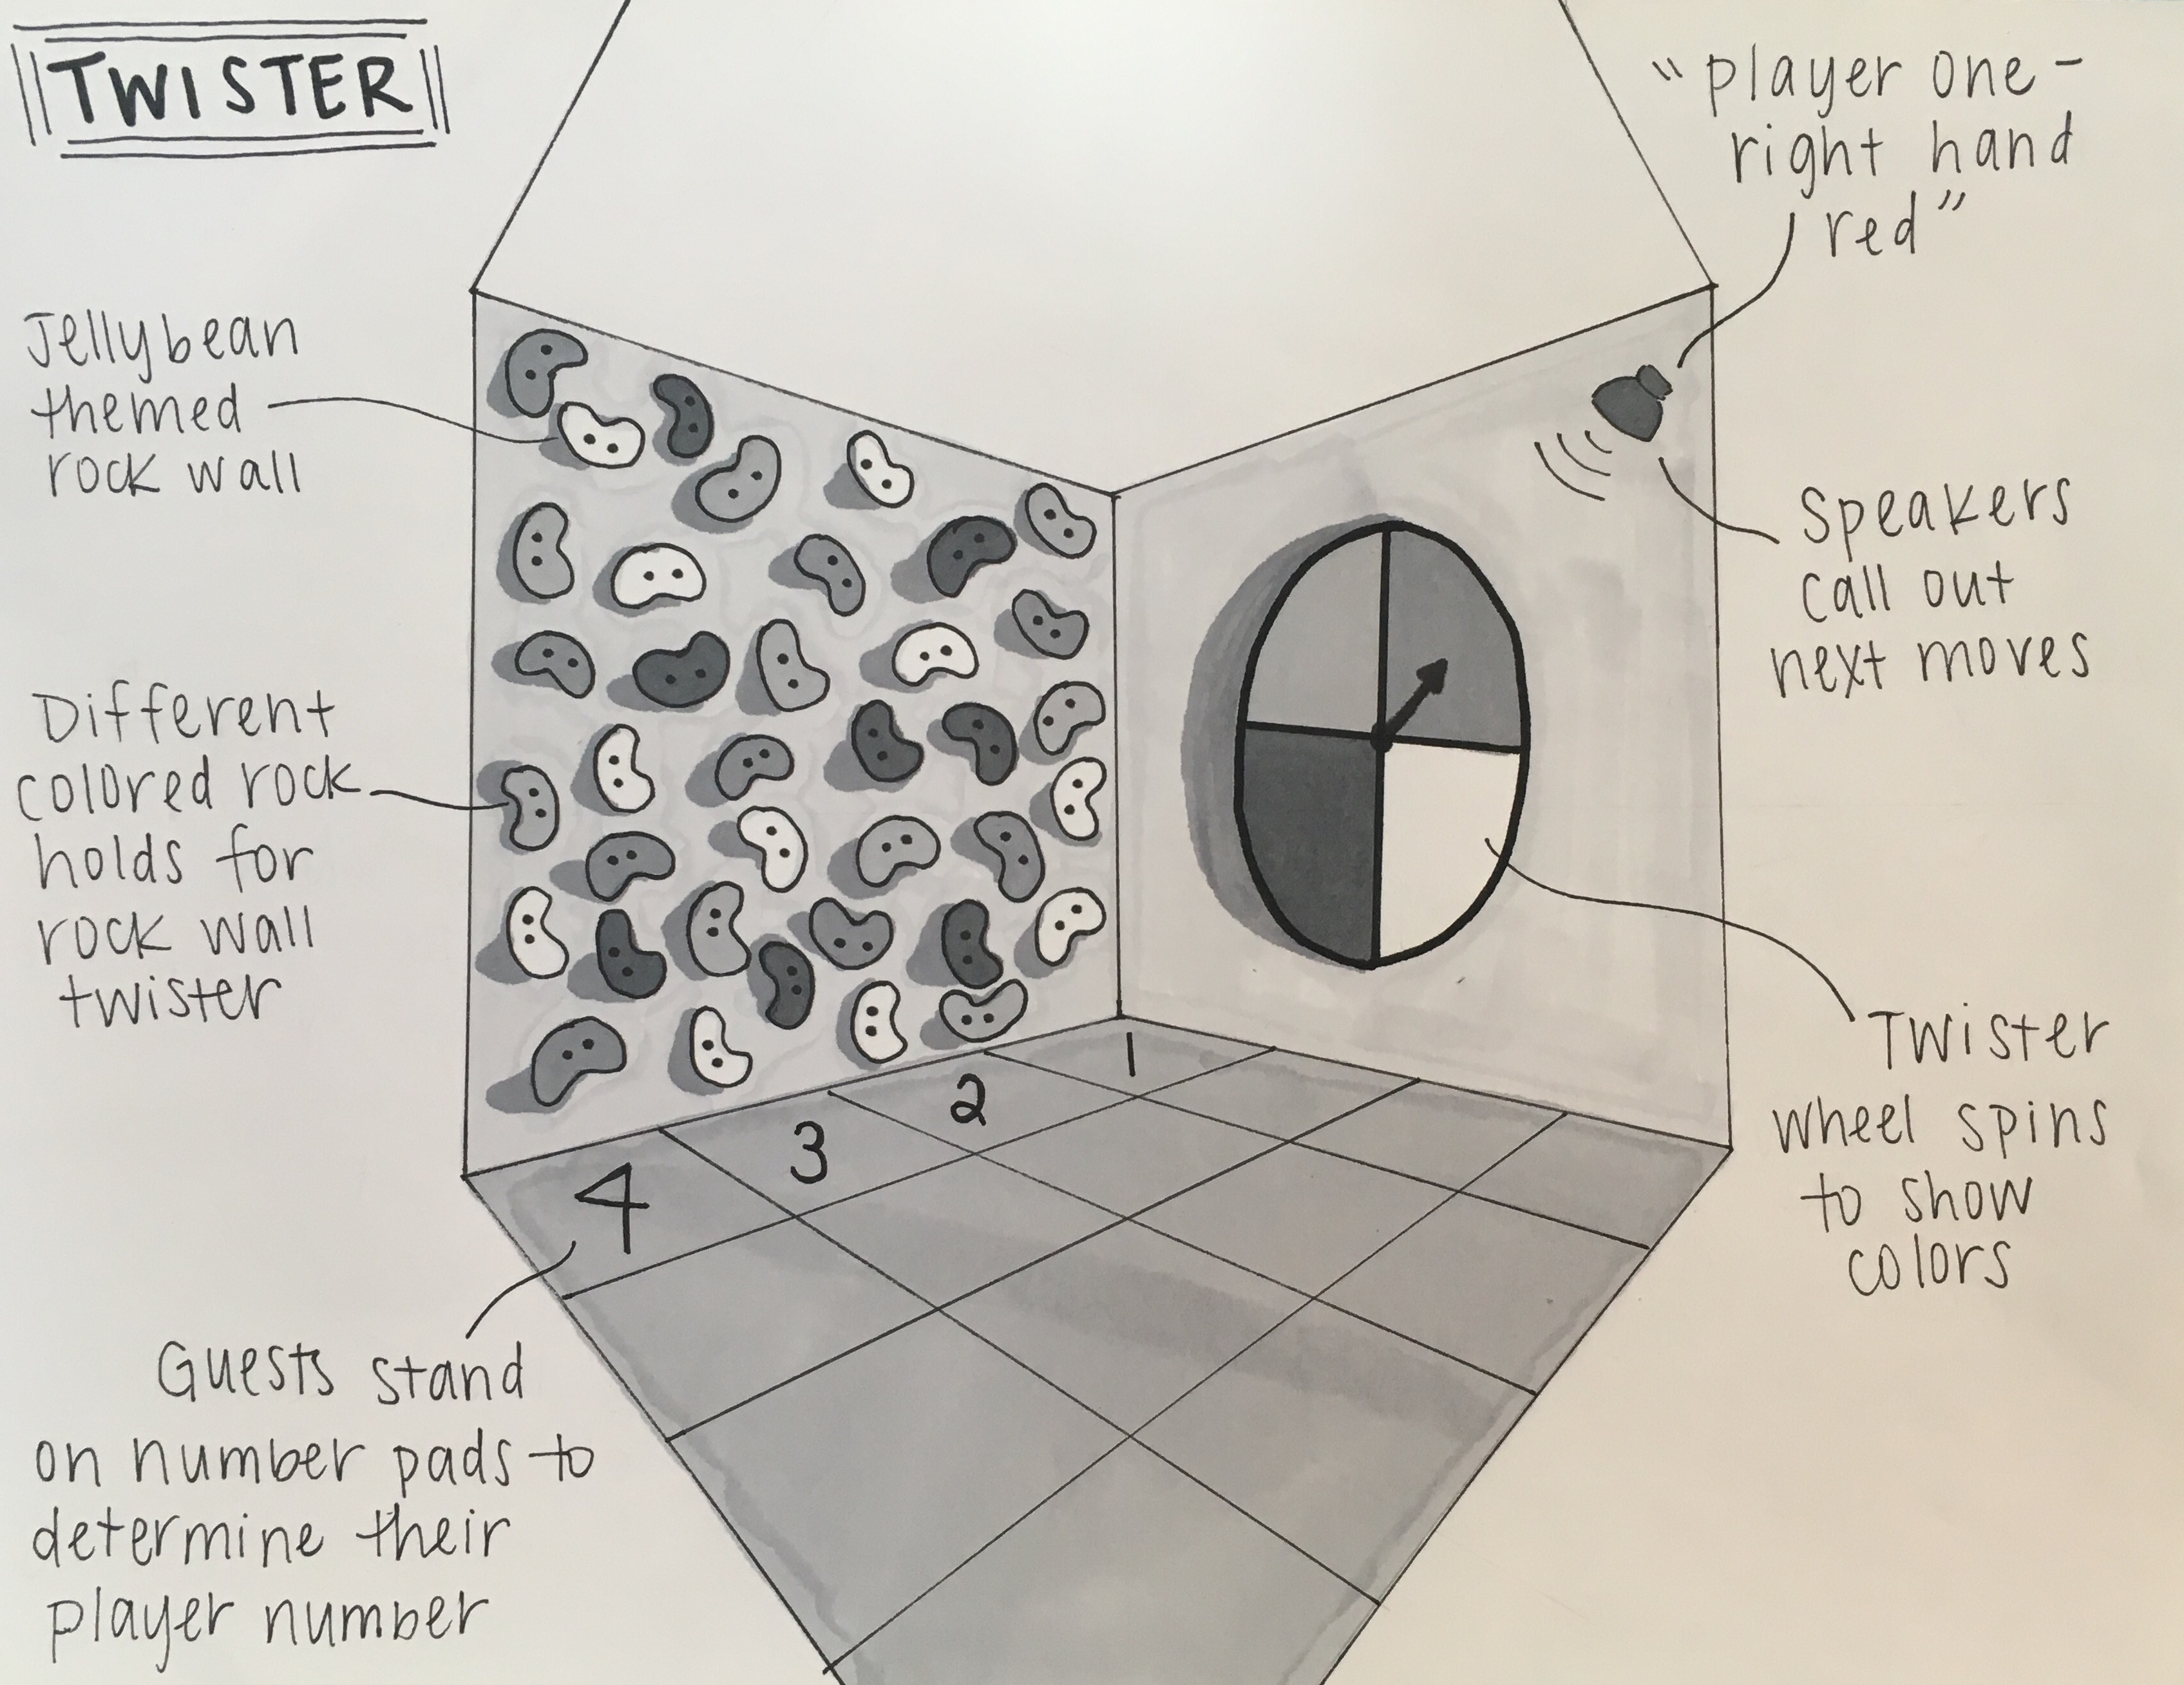 TWISTER
"player one-
right hand
red"
Jellybean
themed
rock wall
Speakers
call out
next moves
Different
colored rock
holds for
rock wall
twister
1
2
3
4
Twister
wheel spins
to show
colors
Guests stand
on number pads to
determine their
player number